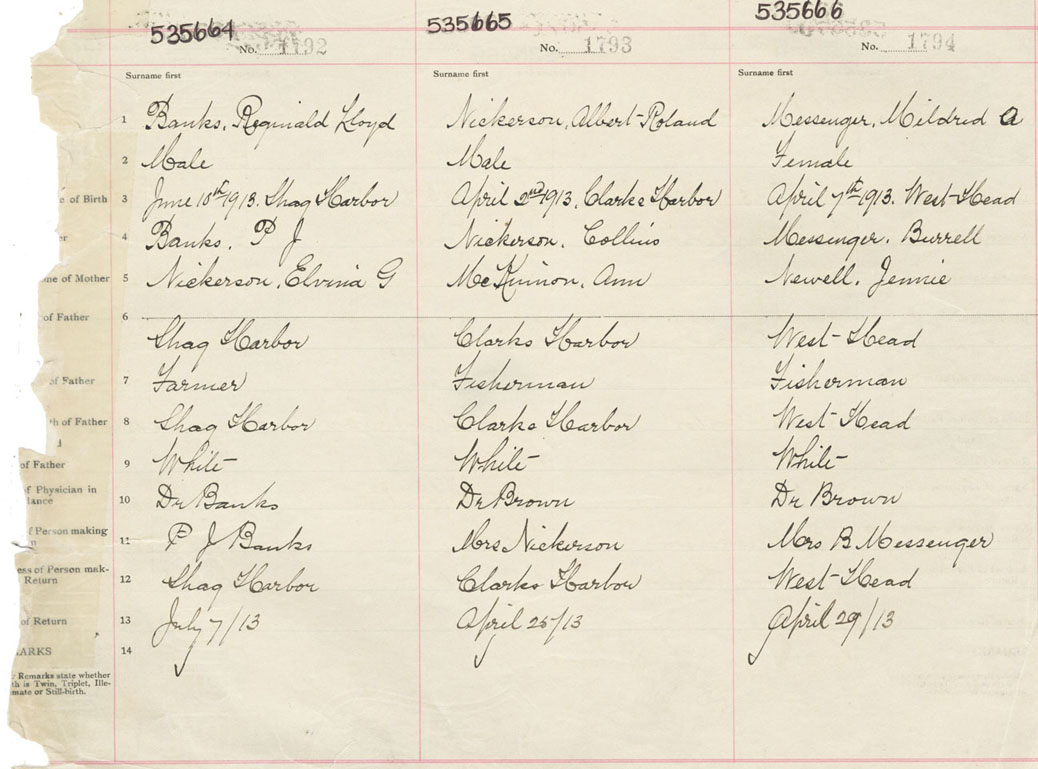 535664 535665 535666
No. 1792 No. 1793 No. 1794
Surname first Surname first Surname first
1 Banks, Reginald Lloyd Nickerson, Albert Roland Messenger, Mildred A
2 Male Male Female
e of Birth 3 June 10th 1913. Shag Harbor April 2nd 1913, Clarks Harbor April 7th 1913. West Head
er 4 Banks, P J Nickerson, Collins Messenger. Burrell
me of Mother 5 Nickerson, Elvina G McKinnon, Ann Newell. Jennie
of Father 6 Shag Harbor Clarks Harbor West Head
of Father 7 Farmer Fisherman Fisherman
th of Father 8 Shag Harbor Clarks Harbor West Head
d
of Father 9 White White White
f Physician in
dance 10 Dr Banks Dr Brown Dr Brown
f Person making
n 11 P J Banks Mrs Nickerson Mrs B Messenger
ess of Person mak-
Return 12 Shag Harbor Clarks Harbor West Head
of Return 13 July 7/13 April 25/13 April 29/13
ARKS 14
Remarks state whether
th is Twin, Triplet, Ille-
mate or Still-birth.